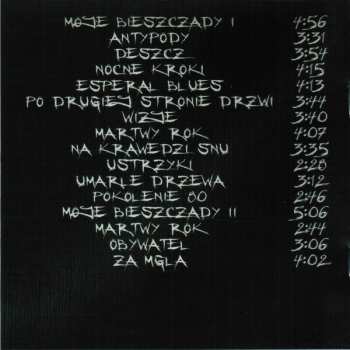 MOJE BIESZCZADY I 4:56
ANTYPODY 3:31
DESZCZ 3:54
NOCNE KROKI 4:15
ESPERAL BLUES 4:13
PO DRUGIEJ STRONIE DRZWI 3:44
WIZJE 3:40
MARTWY ROK 4:07
NA KRAWEDZI SNU 3:35
USTRZYKI 2:28
UMARLE DRZEWA 3:12
POKOLENIE 80 2:46
MOJE BIESZCZADY II 5:06
MARTWY ROK 2:44
OBYWATEL 3:06
ZA MGLA 4:02